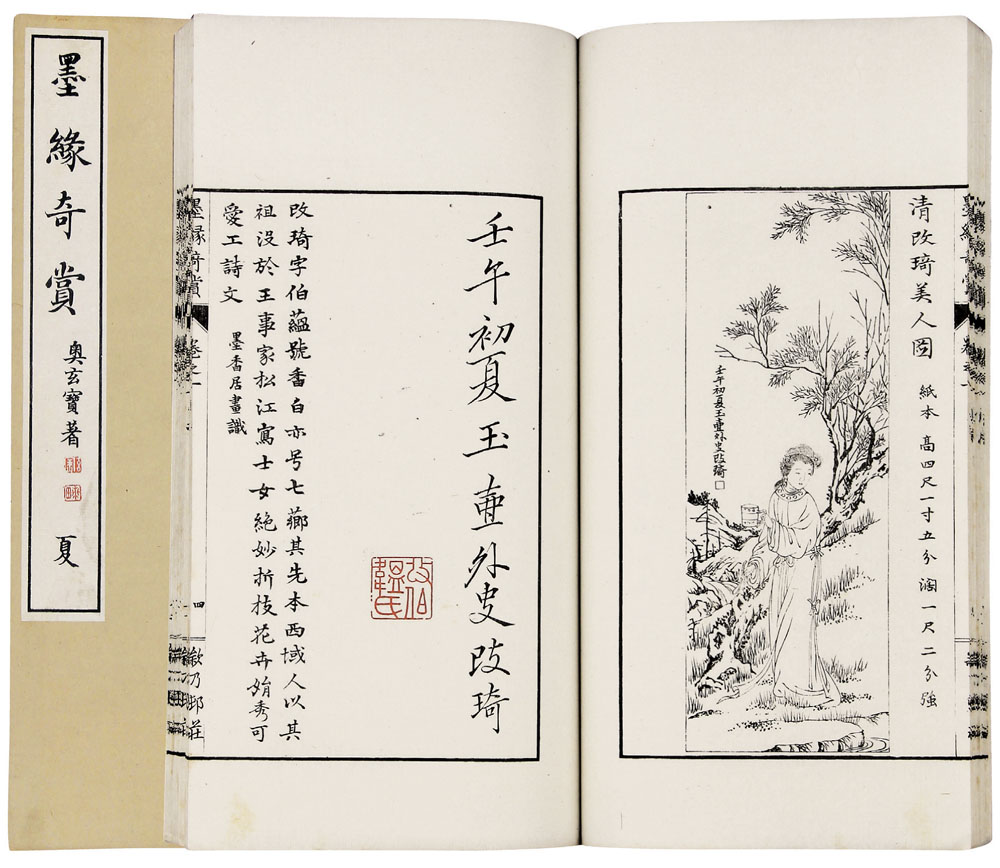 墨緣奇賞
奧玄寶著
夏
清改琦美人圖
紙本 高四尺一寸五分 濶一尺二分強
壬午初夏玉壷外史改琦
壬午初夏玉壷外史改琦
改琦字伯蘊號香白亦号七薌其先本西域人以其
祖没於王事家松江寫士女絶妙折枝花卉娟秀可
愛工詩文 墨香居畫識
墨緣奇賞
卷之一
四